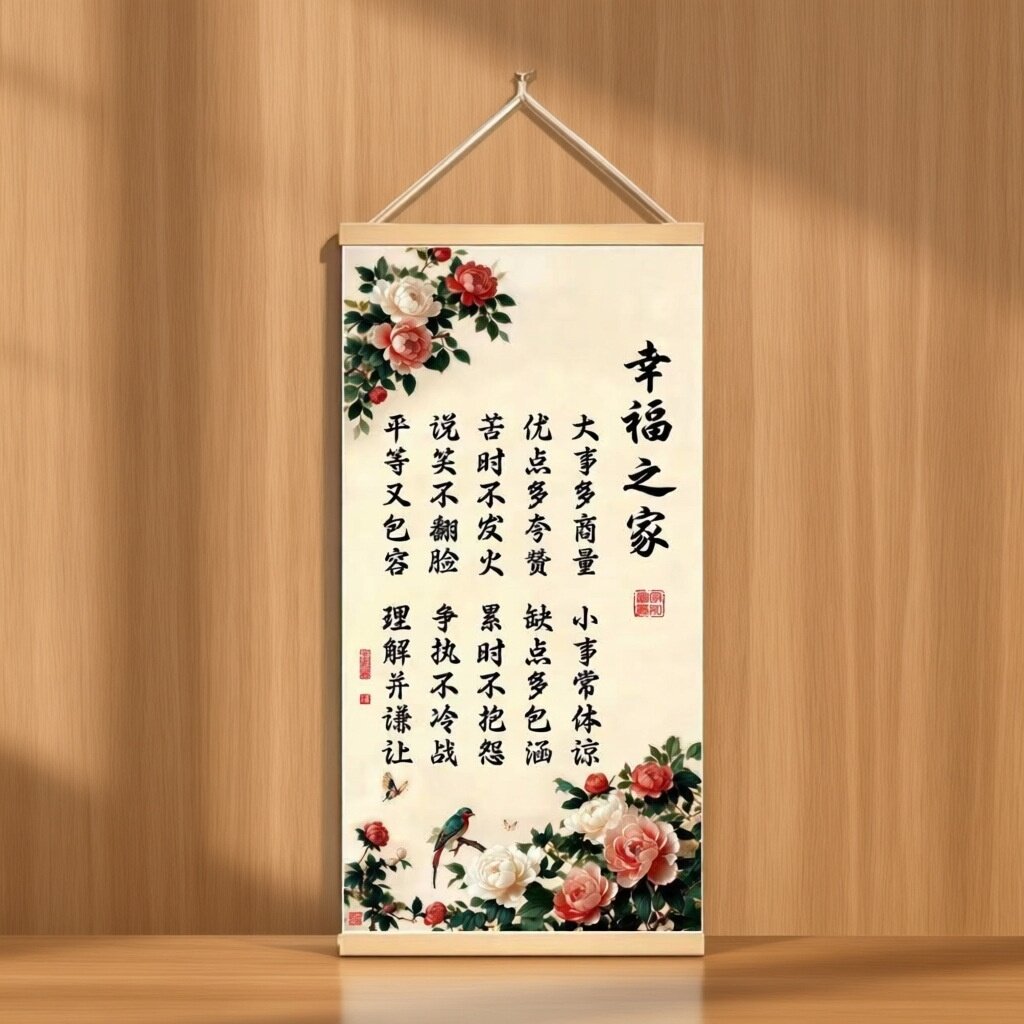 幸福之家
大事多商量 小事常体谅
优点多夸赞 缺点多包涵
苦时不发火 累时不抱怨
说笑不翻脸 争执不冷战
平等又包容 理解并谦让